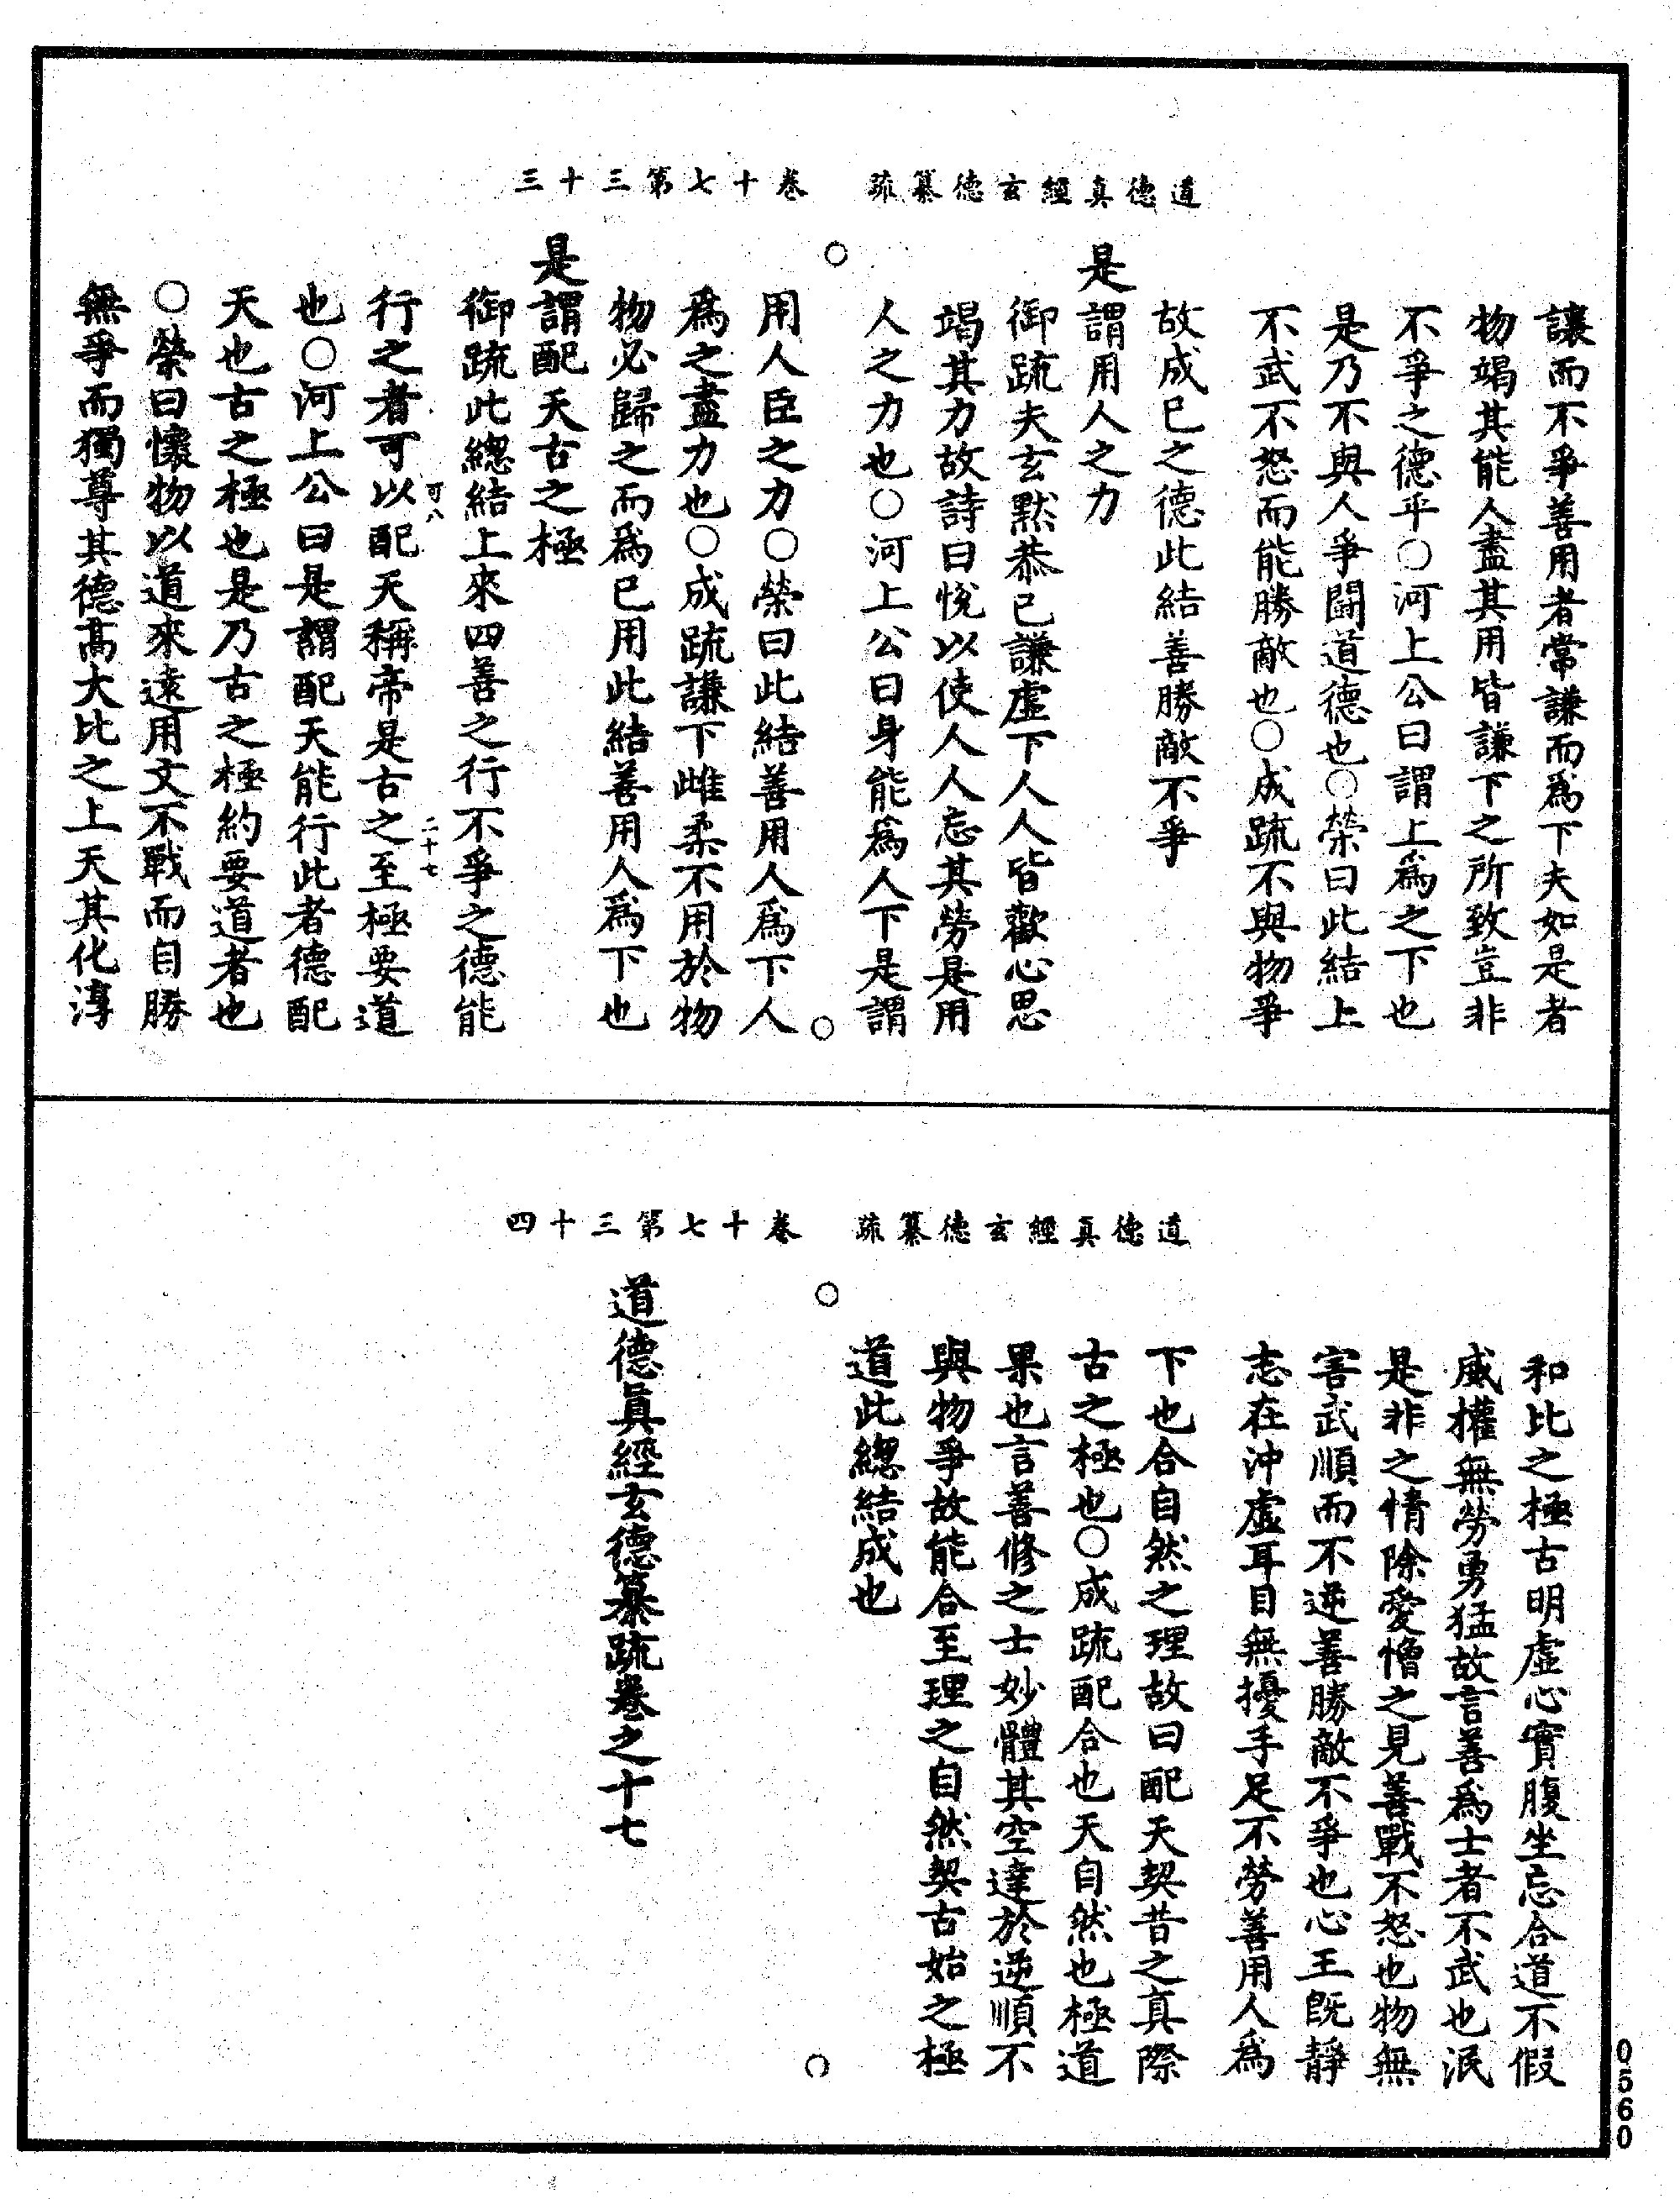 道德真經玄德纂疏　卷十七第三十三
讓而不爭善用者常謙而爲下夫如是者
物竭其能人盡其用皆謙下之所致豈非
不爭之德乎○河上公曰謂上爲之下也
是乃不與人爭鬬道德也○榮曰此結上
不武不怒而能勝敵也○成疏不與物爭
故成已之德此結善勝敵不爭
是謂用人之力
御疏夫玄默恭已謙虛下人人皆歡心思
竭其力故詩曰悅以使人人忘其勞是用
人之力也○河上公曰身能爲人下是謂
用人臣之力○榮曰此結善用人爲下人
爲之盡力也○成疏謙下雌柔不用於物
物必歸之而爲已用此結善用人爲下也
是謂配天古之極
御疏此總結上來四善之行不爭之德能
可八　二十七
行之者可以配天稱帝是古之至極要道
也○河上公曰是謂配天能行此者德配
天也古之極也是乃古之極約要道者也
○榮曰懷物以道來遠用文不戰而自勝
無爭而獨尊其德高大比之上天其化淳
道德真經玄德纂疏　卷十七第三十四
和比之極古明虛心實腹坐忘合道不假
威權無勞勇猛故言善爲士者不武也泯
是非之情除愛憎之見善戰不怒也物無
害武順而不逆善勝敵不爭也心王既靜
志在沖虛耳目無擾手足不勞善用人爲
下也合自然之理故曰配天契昔之真際
古之極也○成疏配合也天自然也極道
果也言善修之士妙體其空達於逆順不
與物爭故能合至理之自然契古始之極
道此總結成也
道德眞經玄德纂疏卷之十七
0560